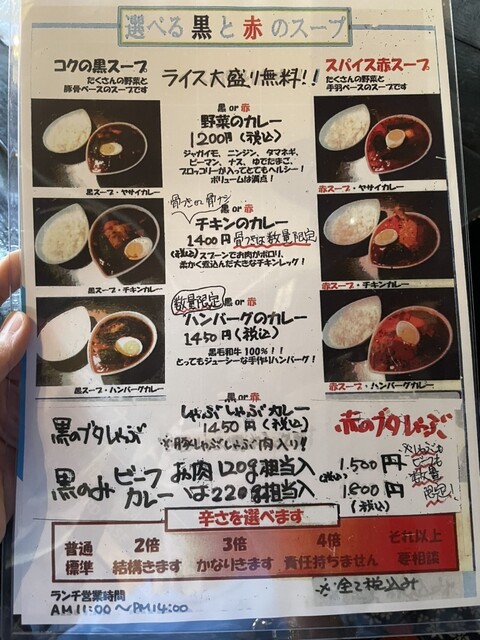 選べる 黒 と 赤 のスープ
コクの黒スープ
たくさんの野菜と
豚骨ベースのスープです
ライス大盛り無料!!
スパイス赤スープ
たくさんの野菜と
手羽ベースのスープです
黒 or 赤
野菜のカレー
1200円(税込)
ジャガイモ、ニンジン、タマネギ、
ピーマン、ナス、ゆでたまご、
ブロッコリーが入ってとてもヘルシー!
ボリュームは満点!
黒スープ・ヤサイカレー
赤スープ・ヤサイカレー
骨つきor骨なし
黒 or 赤
チキンのカレー
1400円 骨つきは数量限定
(税込) スプーンでお肉がポロリ、
柔かく煮込んだ大きなチキンレッグ!
黒スープ・チキンカレー
赤スープ・チキンカレー
数量限定 黒 or 赤
ハンバーグのカレー
1450円(税込)
黒毛和牛100%!!
とってもジューシーな手作りハンバーグ!
黒スープ・ハンバーグカレー
赤スープ・ハンバーグカレー
黒 or 赤
しゃぶしゃぶカレー
1450円(税込)
※豚しゃぶしゃぶ肉入り!!
黒のブタしゃぶ
赤のブタしゃぶ
黒のみ ビーフカレー
お肉120g相当入 1.500円
は220g相当入 (税込) 1.800円
(税込)
数量
限定!
辛さを選べます
普通 2倍 3倍 4倍 それ以上
標準 結構きます かなりきます 責任持ちません 要相談
ランチ営業時間
AM11:00~PM14:00
※全て税込み